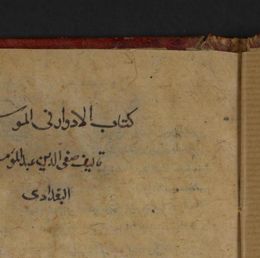 كتاب الادوار فى المو
تاليف صفى الدين عبد المؤمـ
البغدادى